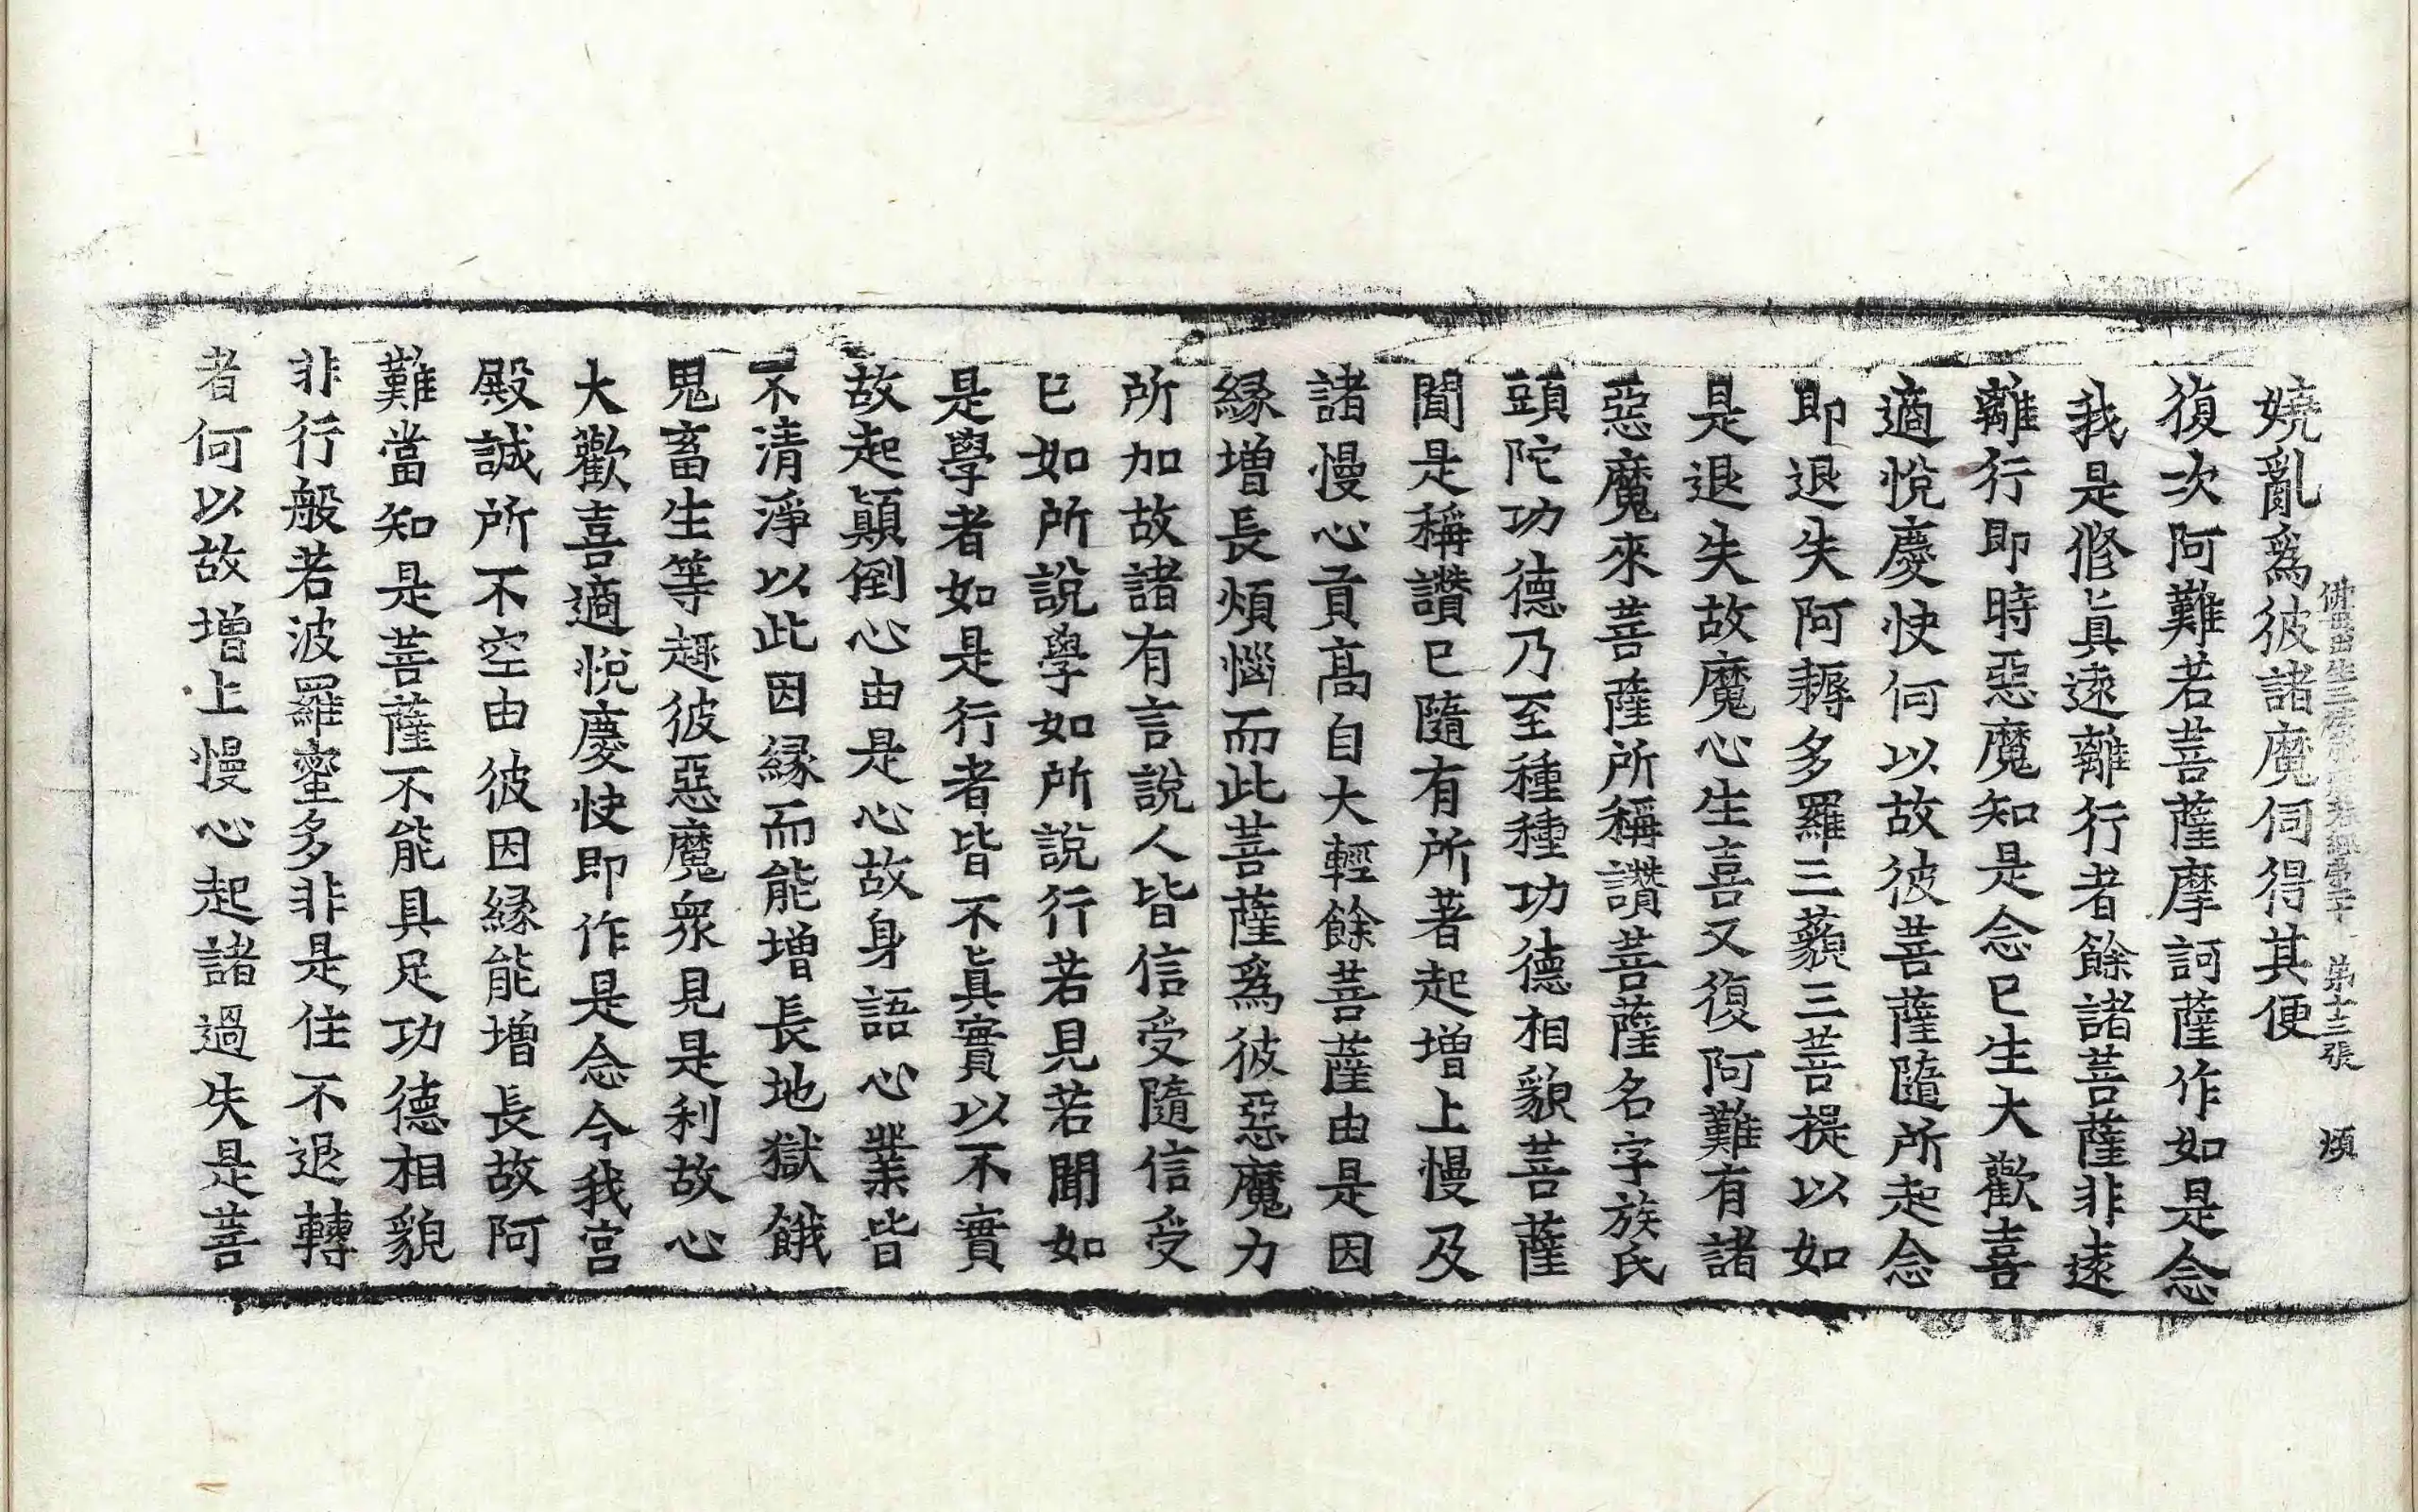 佛母出生三法藏般若經卷第二十 第十三張 煩
嬈亂爲彼諸魔伺得其便
復次阿難若菩薩摩訶薩作如是念
我是修眞遠離行者餘諸菩薩非遠
離行即時惡魔知是念已生大歡喜
適悅慶快何以故彼菩薩隨所起念
即退失阿耨多羅三藐三菩提以如
是退失故魔心生喜又復阿難有諸
惡魔來菩薩所稱讚菩薩名字族氏
頭陀功德乃至種種功德相貌菩薩
聞是稱讚已隨有所著起增上慢及
諸慢心貢高自大輕餘菩薩由是因
緣增長煩惱而此菩薩爲彼惡魔力
所加故諸有言說人皆信受隨信受
已如所說學如所說行若見若聞如
是學者如是行者皆不眞實以不實
故起顚倒心由是心故身語心業皆
不清淨以此因緣而能增長地獄餓
鬼畜生等趣彼惡魔衆見是利故心
大歡喜適悅慶快即作是念今我宮
殿誠所不空由彼因緣能增長故阿
難當知是菩薩不能具足功德相貌
非行般若波羅蜜多非是住不退轉
者何以故增上慢心起諸過失是菩